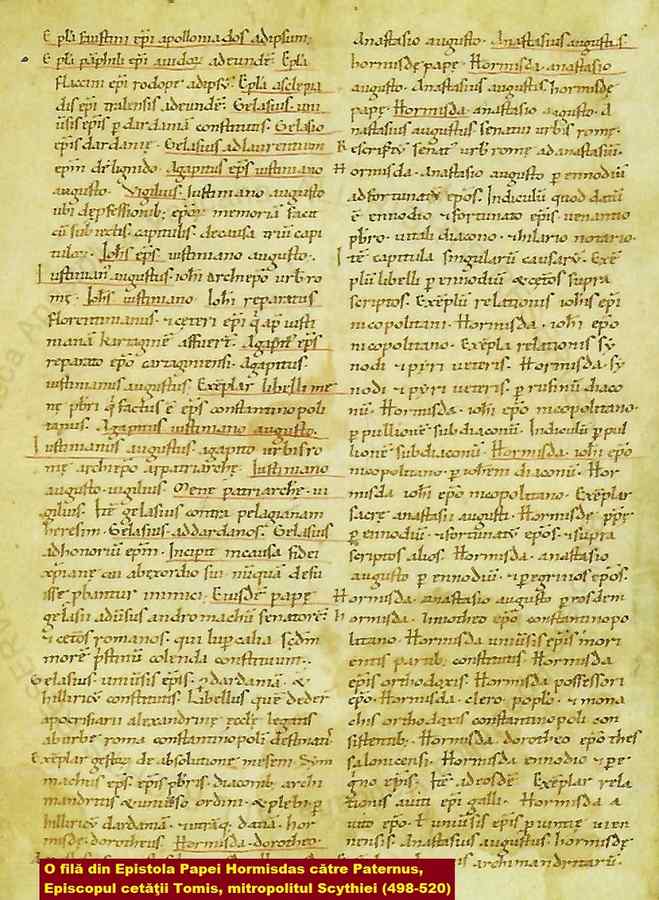 Epła faustini epi apolloniados adipsum.
Epła päphili epi auidoꝝ adeundē. Epła
flaccini epi rodopę adipsū. Epła asclepia
dis epi tralensis adeundē. Gelasius uni
uersis epis ꝑ dardaniā constitutis. Gelasio
epis dardanię. Gelasius ad laurentium
epim de lignido. Agapitus eps iustiniano
augusto. Vigilius iustiniano augusto
ubi de professionib; epoꝝ memoriā facit
cū subiectis capitulis. de causa triū capi
tuloꝝ. Iohs eps iustiniano augusto.
Iustinian' augustus. iohi archiepo urb ro
mę. Iohs iustiniano. Iohi reparatus
florentinianus. & ceteri epi
manā kartaginē. Agapit' eps
reparato epo cartaginensi. Agapitus.
iustinianus augustus. Exēplar libelli me
nę pbri q̇ factus ē eps constantinopoli
tanus. Agapitus iustiniano augusto.
Iustinianus augustus. agapito urbis ro
mę archiepo & patriarchę. Iustiniano
augusto. uigilius. Menę patriarchę. ui
gilius. Itē gelasius contra pelagianam
heresim. Gelasius ad dardanos. Gelasius
ad honoriū epm. Incipit in causa fidei
xpianę qui ab exordio sui nūquā desu
isse probantur inimici. Eiusdē papę
gelasii aduersus andromachū senatorē
& cetos romanos. qui lupcalia scdm
morē pristinū colenda constituunt.
Gelasius. uniusis epis. ꝑ dardaniā. &
hilliricū constitutis. Libellus quē deder
apocrisiarii alexandrinę ecclę legatis
ab urbe roma constantinopoli destinatis.
Exēplar gestoꝝ de absolutione miseni. Sym
machus eps. epis pbris. diaconib; archi
mandritis & uniuso ordini. & plebi ꝑ
hilliricū dardaniā. utrāq; daciā. hor
misdę. dorotheus. Hormisda. dorotheo.
Anastasio augusto. Anastasius augustus
hormisdę papę. Hormisda. anastasio
augusto. Anastasius augustus hormisdę
papę. Hormisda. anastasio augusto. A
nastasius augustus senatui urbis romę.
Rescriptū senat' urb romę ad anastasiū.
Hormisda. anastasio augusto ꝑ ennodiū
ad fortunatū epos. Indiculū quod datū
ē ennodio & fortunato epis. uenantio
pbro. uitali diacono. & hilario notario.
Itē capitula singularū causarū. Exē
plū libelli ꝑ ennodiū & cetos supra
scriptos. Exēplū relationis iohis epi
nicopolitani. Hormisda. iohi epo
nicopolitano. Exēpla relationis sy
nodi & pyri ueteris. Hormisda. sy
nodi & pyri ueteris. ꝑ rufinū diaco
nū. Hormisda. iohi epo nicopolitano.
ꝑ pullionē subdiaconū. Indiculū ꝑ pul
lionē subdiaconū. Hormisda. iohi epo
nicopolitano. ꝑ iohem diaconū. Hor
misda iohi epo nicopolitano. Exēplar
sacrę anastasii augusti. Hormisdę ppę.
ꝑ ennodiū. & fortunatū epos. & supra
scriptos alios. Hormisda. anastasio
augusto ꝑ ennodiū. & peregrinos epos.
Hormisda. anastasio augusto
Hormisda. timotheo epo constantinopo
litano. Hormisda uniusis epis mori
entis partib; constitutis. Hormisda
epis orthodoxis. Hormisda possessori
epo. Hormisda. clero. poplo. & mona
chis orthodoxis constantinopoli con
sistentib;. Hormisda. dorotheo epo thes
salonicensi. Hormisda ennodio & pe
grino epis. Itē ad eosdē. Exēplar rela
tionis auiti epi galli. Hormisda a
uito epo. & uniusis epis uien
nensis. Anastasius augustus. hormisdę
archimandritarū.
O filă din Epistola Papei Hormisdas către Paternus,
Episcopul cetăţii Tomis, mitropolitul Scythiei (498-520)